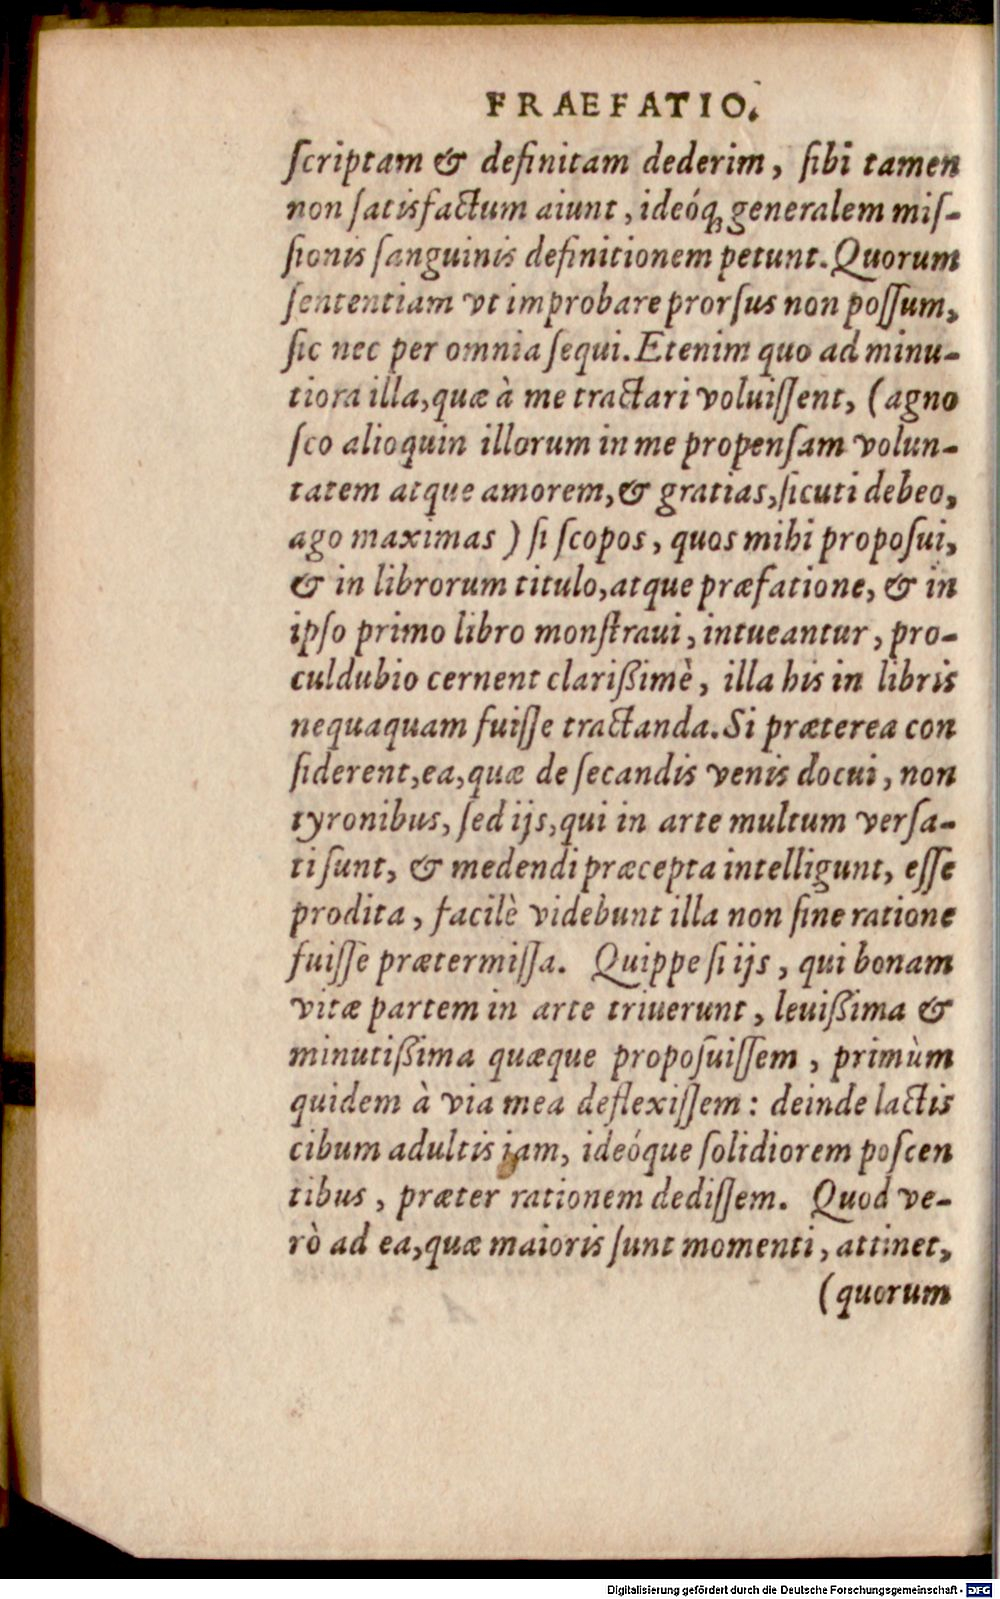 PRAEFATIO.
ſcriptam & definitam dederim, ſibi tamen
non ſatisfactum aiunt, ideóq; generalem miſ-
ſionis ſanguinis definitionem petunt. Quorum
ſententiam vt improbare prorſus non poſſum,
ſic nec per omnia ſequi. Etenim quo ad minu-
tiora illa, quæ à me tractari voluiſſent, (agno
ſco alioquin illorum in me propenſam volun-
tatem atque amorem, & gratias, ſicuti debeo,
ago maximas) ſi ſcopos, quos mihi propoſui,
& in librorum titulo, atque præfatione, & in
ipſo primo libro monſtraui, intueantur, pro-
culdubio cernent clarißimè, illa his in libris
nequaquam fuiſſe tractanda. Si præterea con
ſiderent, ea, quæ de ſecandis venis docui, non
tyronibus, ſed ijs, qui in arte multum verſa-
ti ſunt, & medendi præcepta intelligunt, eſſe
prodita, facilè videbunt illa non ſine ratione
fuiſſe prætermiſſa. Quippe ſi ijs, qui bonam
vitæ partem in arte triuerunt, leuißima &
minutißima quæque propoſuiſſem, primùm
quidem à via mea deflexiſſem: deinde lactis
cibum adultis iam, ideóque ſolidiorem poſcen
tibus, præter rationem dediſſem. Quod ve-
rò ad ea, quæ maioris ſunt momenti, attinet,
(quorum
Digitalisierung gefördert durch die Deutsche Forschungsgemeinschaft - DFG